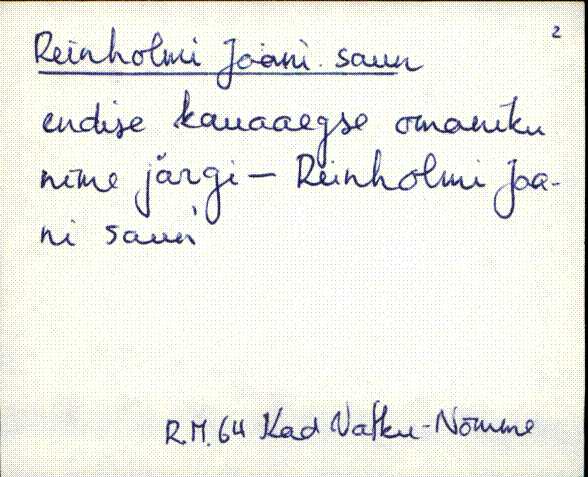 2
Reinholmi Jaani saun
endise kauaaegse omaniku
nime järgi - Reinholmi Jaa-
ni saun
R.M. 64 Kad Vatku-Nõmme